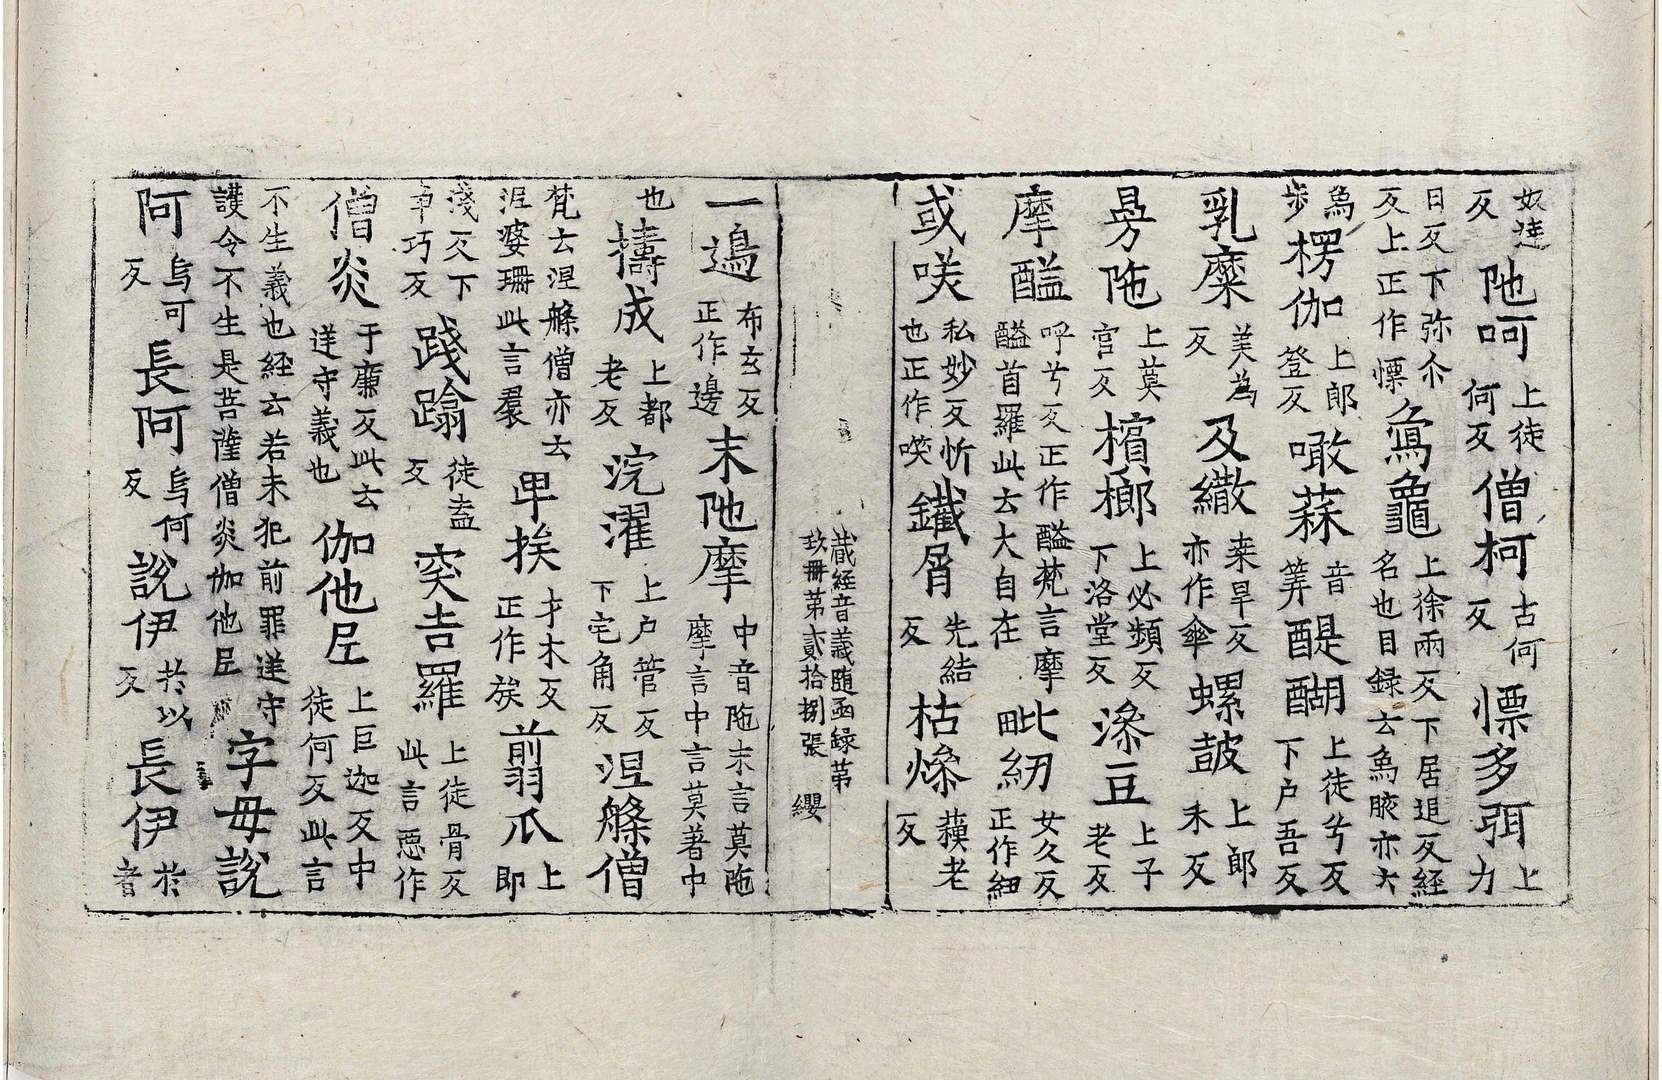 奴達反陁呵上徒何反僧柯古何反慓多弭上力
日反下弥尒反上正作慄鳬龜上徐兩反下居追反経名也目録去爲腋亦六
爲步楞伽上郎登反噉蒜音筭醍醐上徒兮反下户吾反
乳糜美為反及繖桒旱反亦作傘螺鼓上郎禾反
昜陁上莫官反檳榔上必頻反下洛堂反㴜豆上子老反
摩醯呼兮反正作醯梵言摩醯首羅此云大自在毗紉女久反正作紐
或唉私妙反忻也正作㗛鐵屑先結反枯燥蘓老反
藏経音義随函録第玖冊第貳拾捌張 纓
一邊布玄反正作邊末陁摩中音陁末言莫陁摩言中言莫著中
也擣成上都老反浣濯上户管反下宅角反涅槃僧
梵云涅槃僧亦云泥婆珊此言裙卑挨才木反正作族翦爪上即
淺反下爭巧反踐蹹徒盍反突吉羅上徒骨反此言惡作
僧炎于廉反此云遅守義也伽他㞐上巨迦反中徒何反此言
不生義也経云若未犯前罪遅守護令不生是菩薩僧炎伽他㞐字母說
阿烏可反長阿烏何反說伊於以反長伊於音